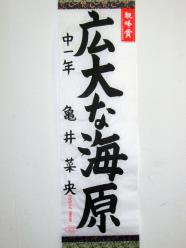 親峰賞
広大な海原
中一年 亀井菜央